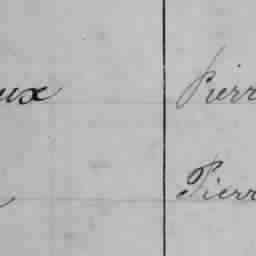 ux Pierr
Pierr